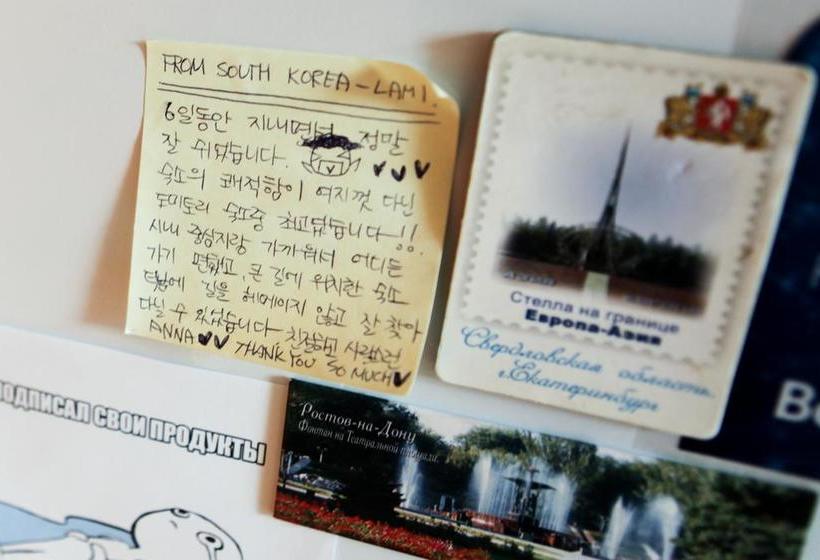 FROM SOUTH KOREA - LAMI.
6일동안 지내면서 정말
잘 쉬었습니다.
숙소의 쾌적함이 여지껏 다닌
도미토리 숙소중 최고였습니다!!
시내 중심지랑 가까워서 어디든
가기 편했고, 큰 길에 위치한 숙소
덕분에 길을 헤메이지 않고 잘 찾아
다닐 수 있었습니다 친절하고 사랑스런
ANNA♥♥ THANK YOU SO MUCH♥
Стелла на границе
Европа-Азия
Свердловская область
г.Екатеринбург
ПОДПИСАЛ СВОИ ПРОДУКТЫ
Ростов-на-Дону
Фонтан на Театральной площади.
Во